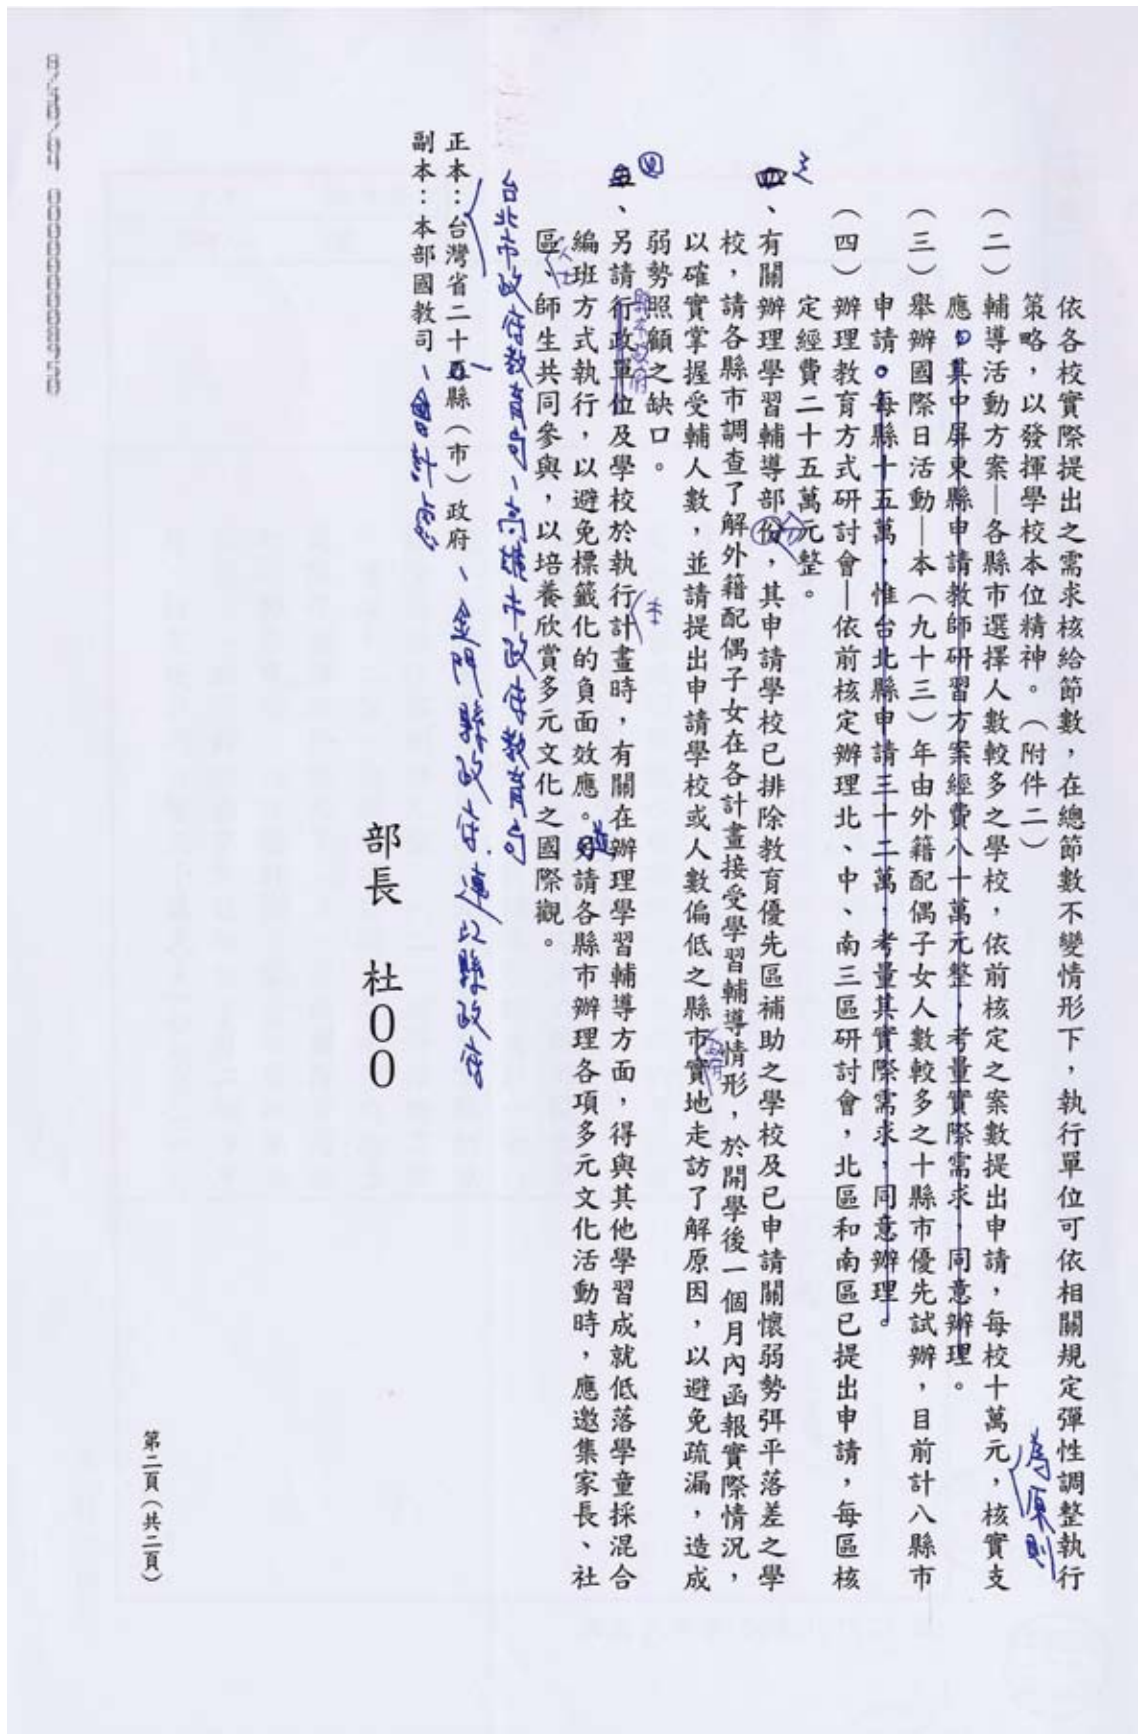 依各校實際提出之需求核給節數，在總節數不變情形下，執行單位可依相關規定彈性調整執行
策略，以發揮學校本位精神。（附件二）
（二）輔導活動方案—各縣市選擇人數較多之學校，依前核定之案數提出申請，每校十萬元，核實支
為原則
應。其中屏東縣申請教師研習方案經費八十萬元整，考量實際需求，同意辦理。
（三）舉辦國際日活動—本（九十三）年由外籍配偶子女人數較多之十縣市優先試辦，目前計八縣市
申請。每縣十五萬，惟台北縣申請三十二萬，考量其實際需求，同意辦理。
（四）辦理教育方式研討會—依前核定辦理北、中、南三區研討會，北區和南區已提出申請，每區核
定經費二十五萬元整。
四、有關辦理學習輔導部份，其申請學校已排除教育優先區補助之學校及已申請關懷弱勢弭平落差之學
分
校，請各縣市調查了解外籍配偶子女在各計畫接受學習輔導情形，於開學後一個月內函報實際情況，
以確實掌握受輔人數，並請提出申請學校或人數偏低之縣市實地走訪了解原因，以避免疏漏，造成
政府
弱勢照顧之缺口。
四
縣市政府
本
五、另請行政單位及學校於執行計畫時，有關在辦理學習輔導方面，得與其他學習成就低落學童採混合
編班方式執行，以避免標籤化的負面效應。另請各縣市辦理各項多元文化活動時，應邀集家長、社
並
人士
區、師生共同參與，以培養欣賞多元文化之國際觀。
台北市政府教育局、高雄市政府教育局
正本：台灣省二十五縣（市）政府、金門縣政府、連江縣政府
一
副本：本部國教司、會計處
部長　杜００
第二頁（共二頁）